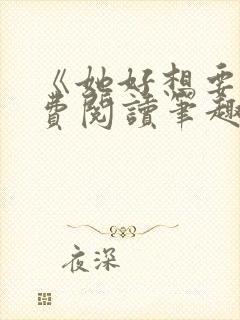 《她好想要
費閱讀筆趣
夜深